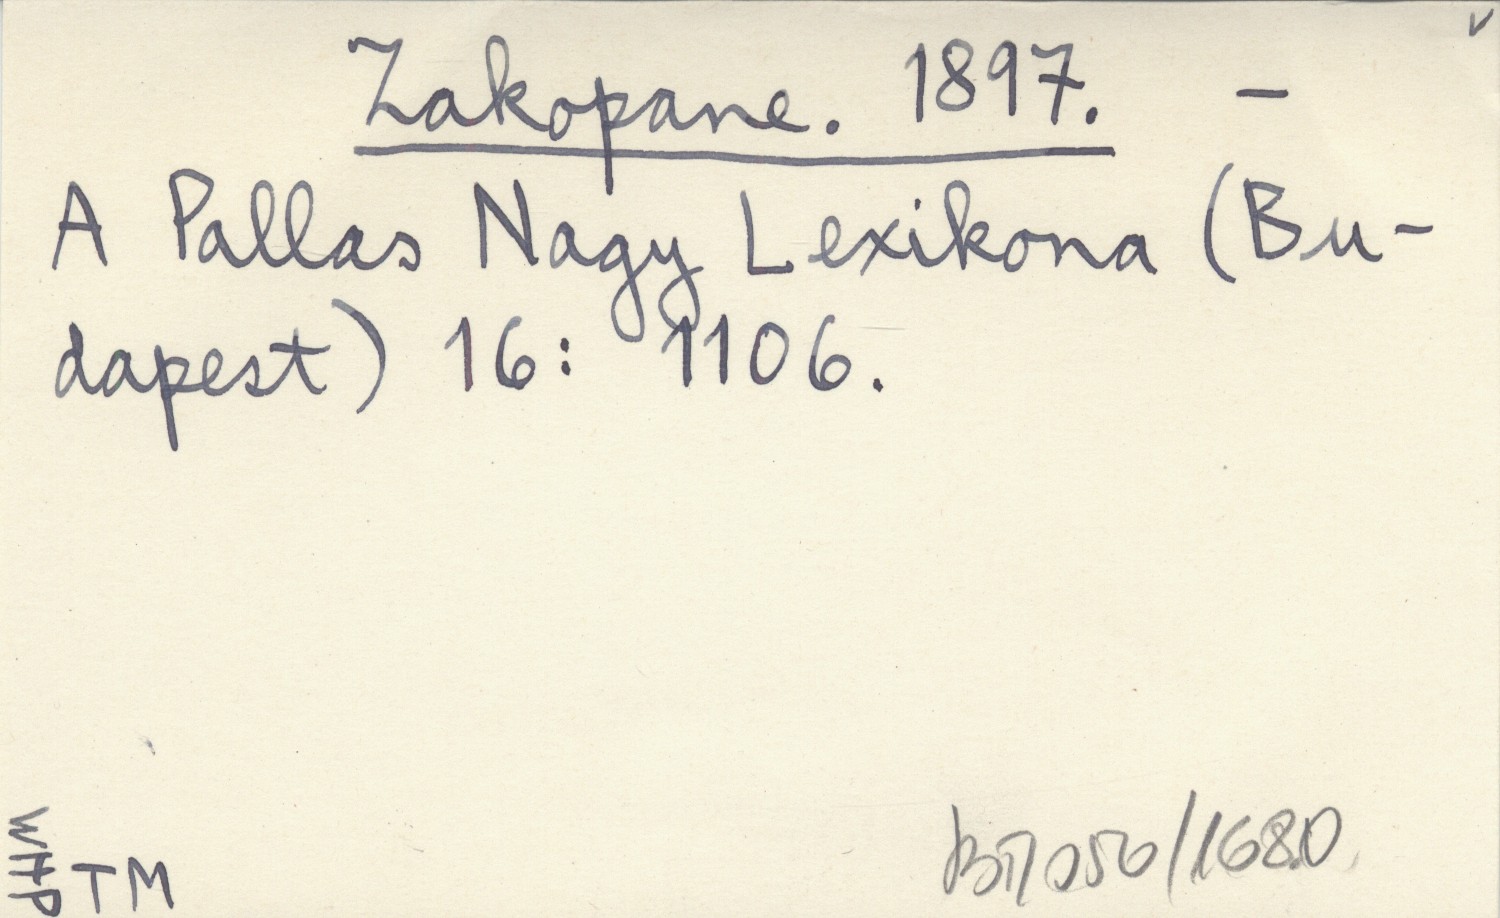 Zakopane. 1897. –
A Pallas Nagy Lexikona (Bu-
dapest) 16: 1106.
WHP
TM